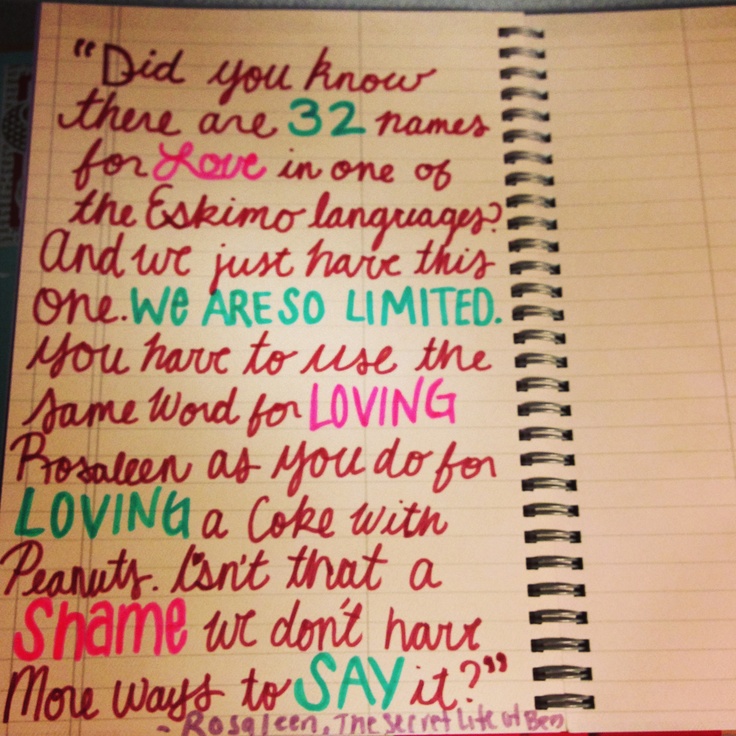 "Did you know
there are 32 names
for Love in one of
the Eskimo languages?
And we just have this
one. We ARE SO LIMITED.
You have to use the
same Word for LOVING
Rosaleen as you do for
LOVING a Coke with
Peanuts. Isn't that a
Shame we don't have
More ways to SAY it?"
- Rosaleen, The Secret Life of Bees